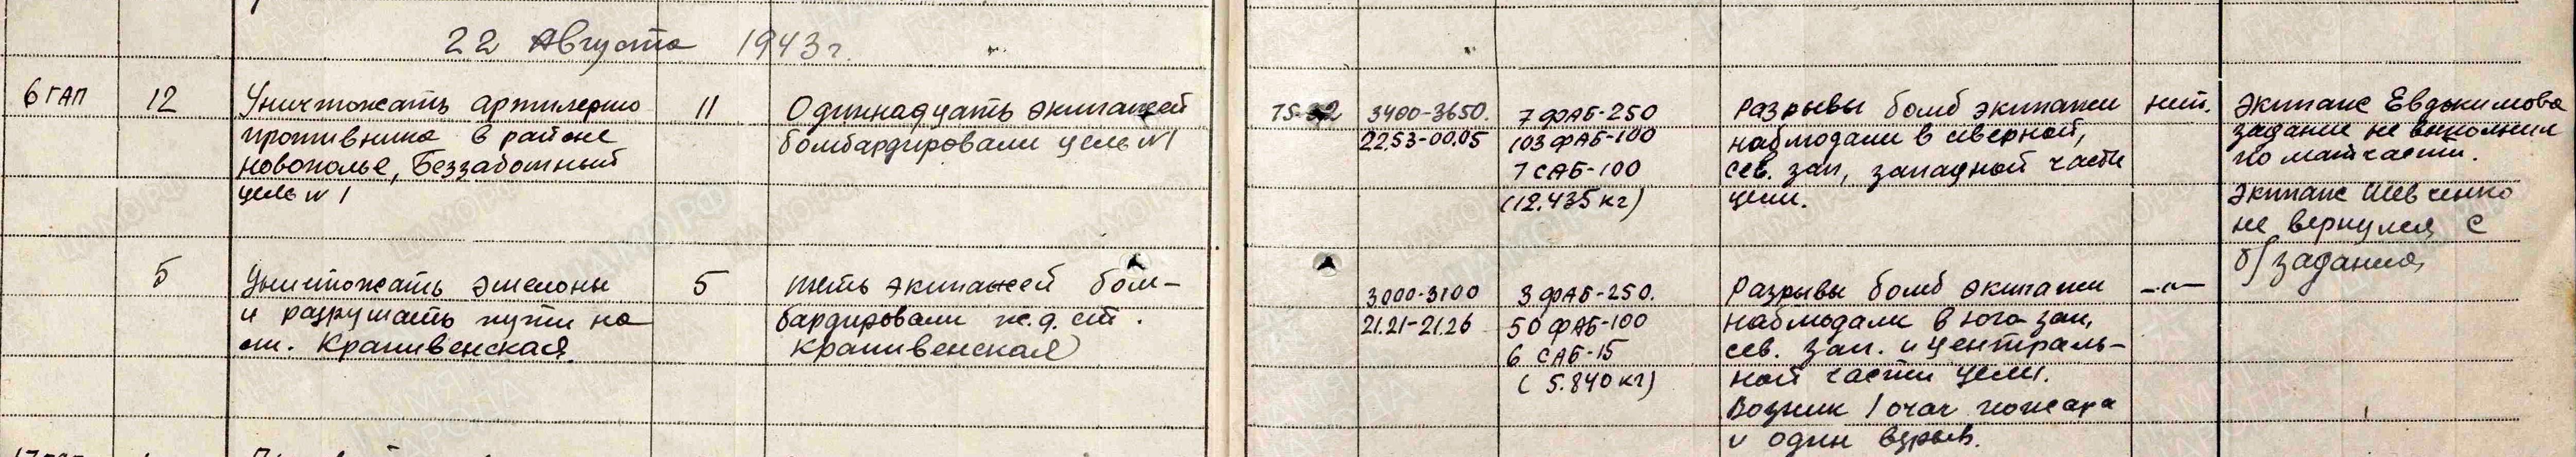 22 Августа 1943 г.
6 ГАП
12
Уничтожать артилерию
противника в районе
Новополье, Беззаботный
цель №1
11
Одиннадцать экипажей
бомбардировали цель №1
3400-3650.
22.53-00.05
7 ФАБ-250
103 ФАБ-100
7 САБ-100
(12.435 кг)
Разрывы бомб экипажи
наблюдали в северной,
сев. зап, западной части
цели.
нит.
Экипаж Евдокимова
задание не выполнил
по матчасти.
Экипаж Шевченко
не вернулся с
б/задания
5
Уничтожать эшелоны
и разрушать пути на
ст. Крапивенская
5
Пять экипажей бом-
бардировали ж.д. ст.
Крапивенская
3000-3100
21.21-21.26
3 ФАБ-250.
50 ФАБ-100
6 САБ-15
(5.840 кг)
Разрывы бомб экипажи
наблюдали в юго зап,
сев. зап. и централь-
ной части цели.
Возник 1 очаг пожара
и один взрыв.
-"-